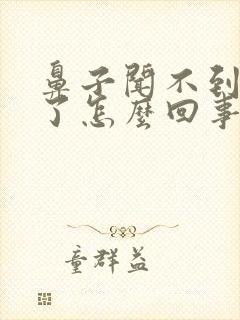 鼻子闻不到
了怎么回事
童群益